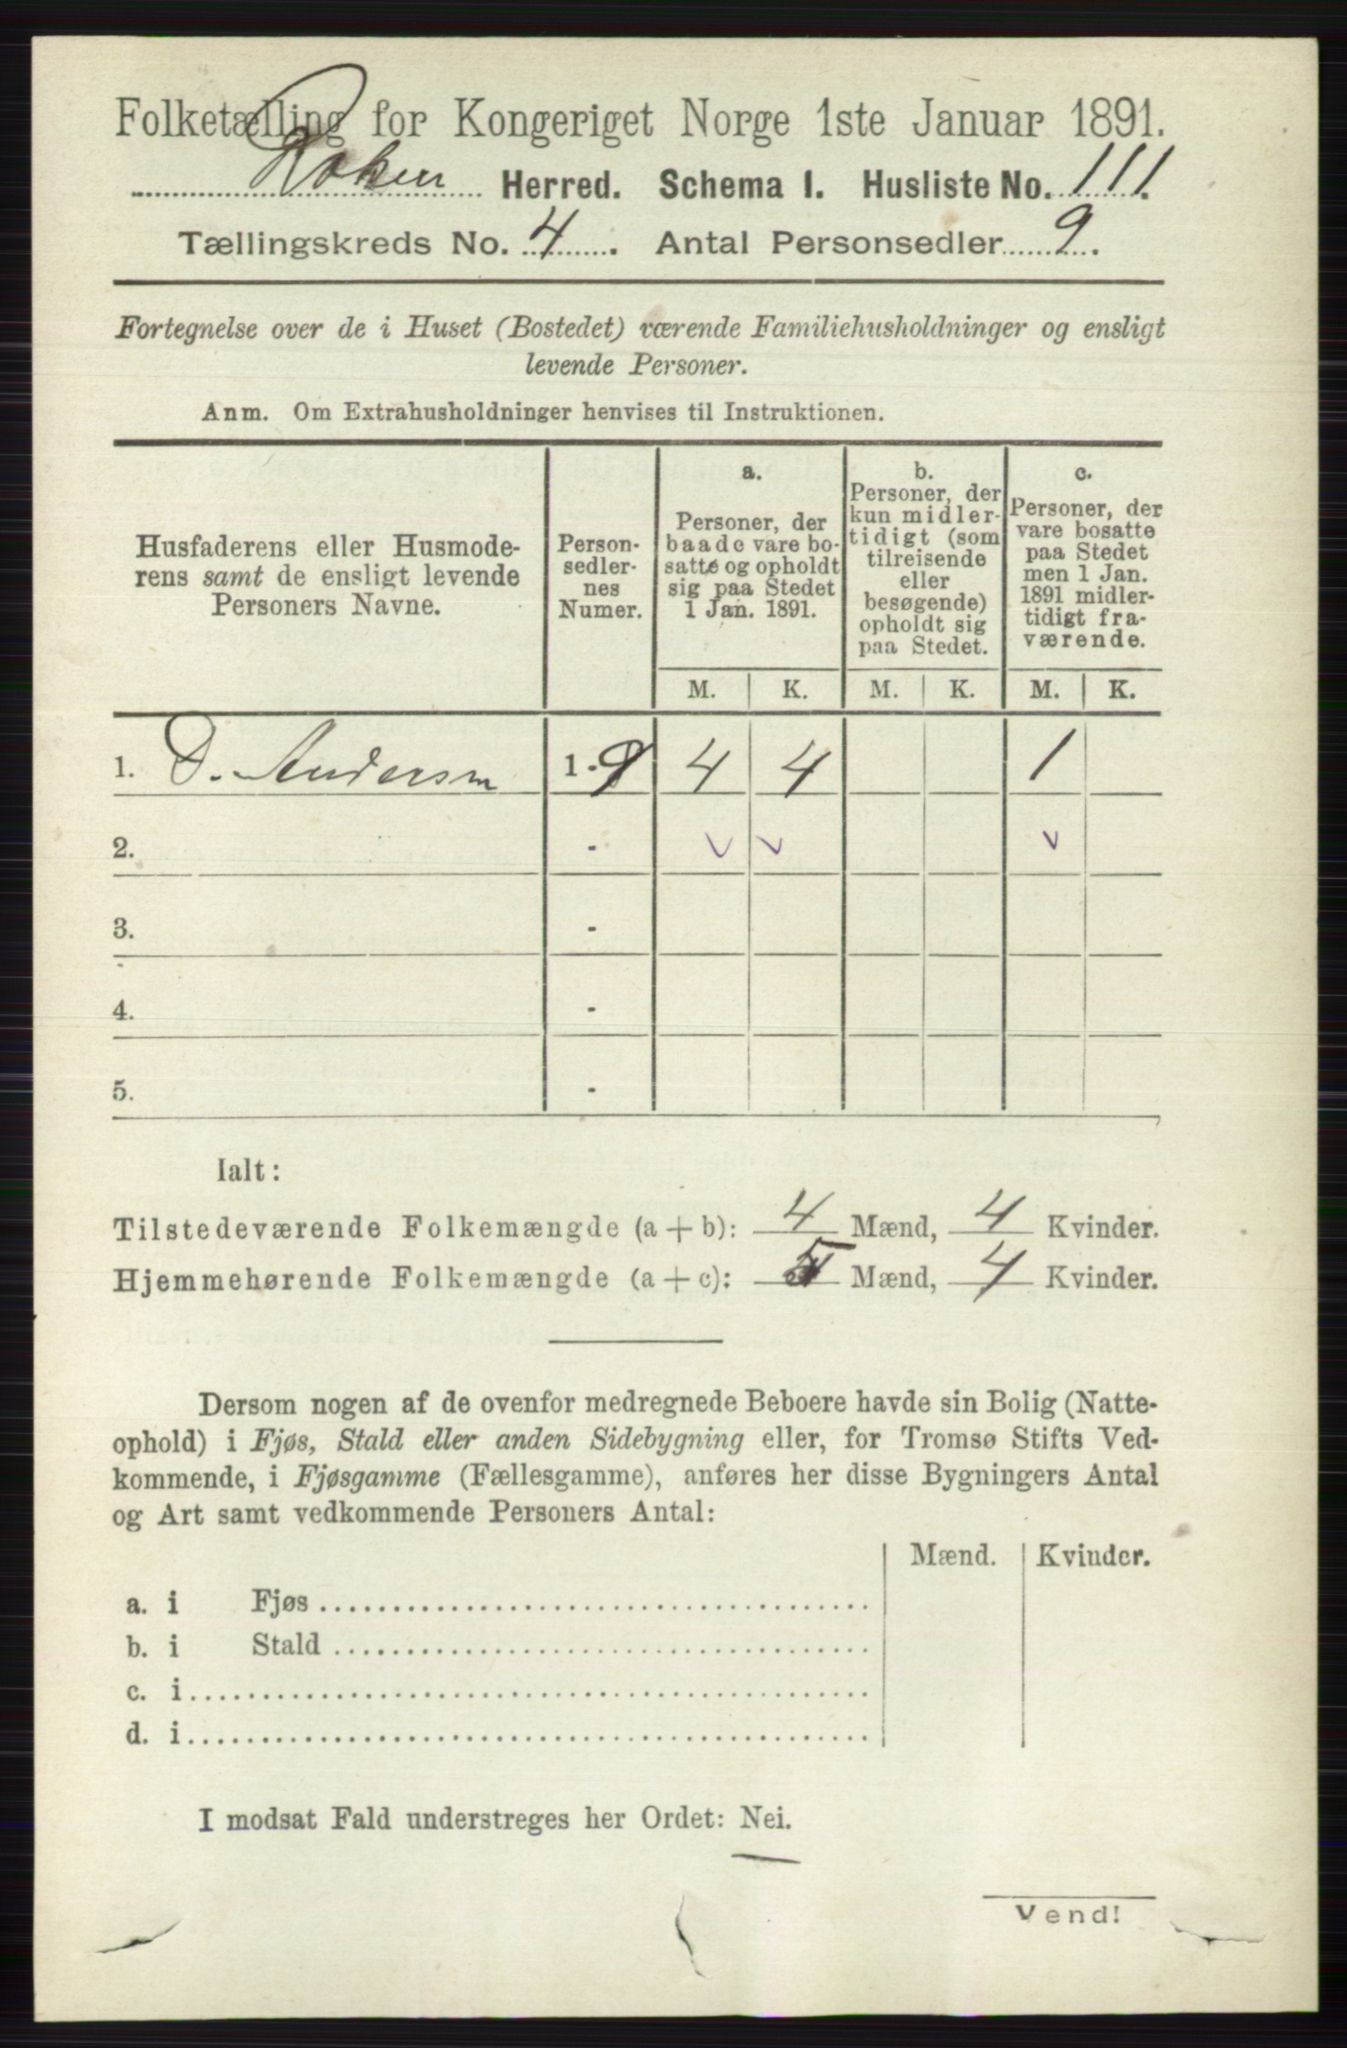 Folketælling for Kongeriget Norge 1ste Januar 1891.
Røken Herred. Schema I. Husliste No. 111.
Tællingskreds No. 4. Antal Personsedler 9.
Fortegnelse over de i Huset (Bostedet) værende Familiehusholdninger og ensligt
levende Personer.
Anm. Om Extrahusholdninger henvises til Instruktionen.
Husfaderens eller Husmode-
rens samt de ensligt levende
Personers Navne.
Person-
sedler-
nes
Numer.
a.
Personer, der
baade vare bo-
satte og opholdt
sig paa Stedet
1 Jan. 1891.
b.
Personer, der
kun midler-
tidigt (som
tilreisende
eller
besøgende)
opholdt sig
paa Stedet.
c.
Personer, der
vare bosatte
paa Stedet
men 1 Jan.
1891 midler-
tidigt fra-
værende.
M. K. M. K. M. K.
1. D. Andersen 1-9 4 4 1
2. - v v v
3. -
4. -
5. -
Ialt:
Tilstedeværende Folkemængde (a + b): 4 Mænd, 4 Kvinder.
Hjemmehørende Folkemængde (a + c): 5 Mænd, 4 Kvinder.
Dersom nogen af de ovenfor medregnede Beboere havde sin Bolig (Natte-
ophold) i Fjøs, Stald eller anden Sidebygning eller, for Tromsø Stifts Ved-
kommende, i Fjøsgamme (Fællesgamme), anføres her disse Bygningers Antal
og Art samt vedkommende Personers Antal:
Mænd. Kvinder.
a. i Fjøs
b. i Stald
c. i
d. i
I modsat Fald understreges her Ordet: Nei.
Vend!